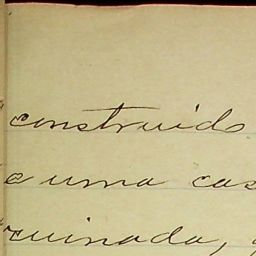 construido
e uma cas
ruinada,